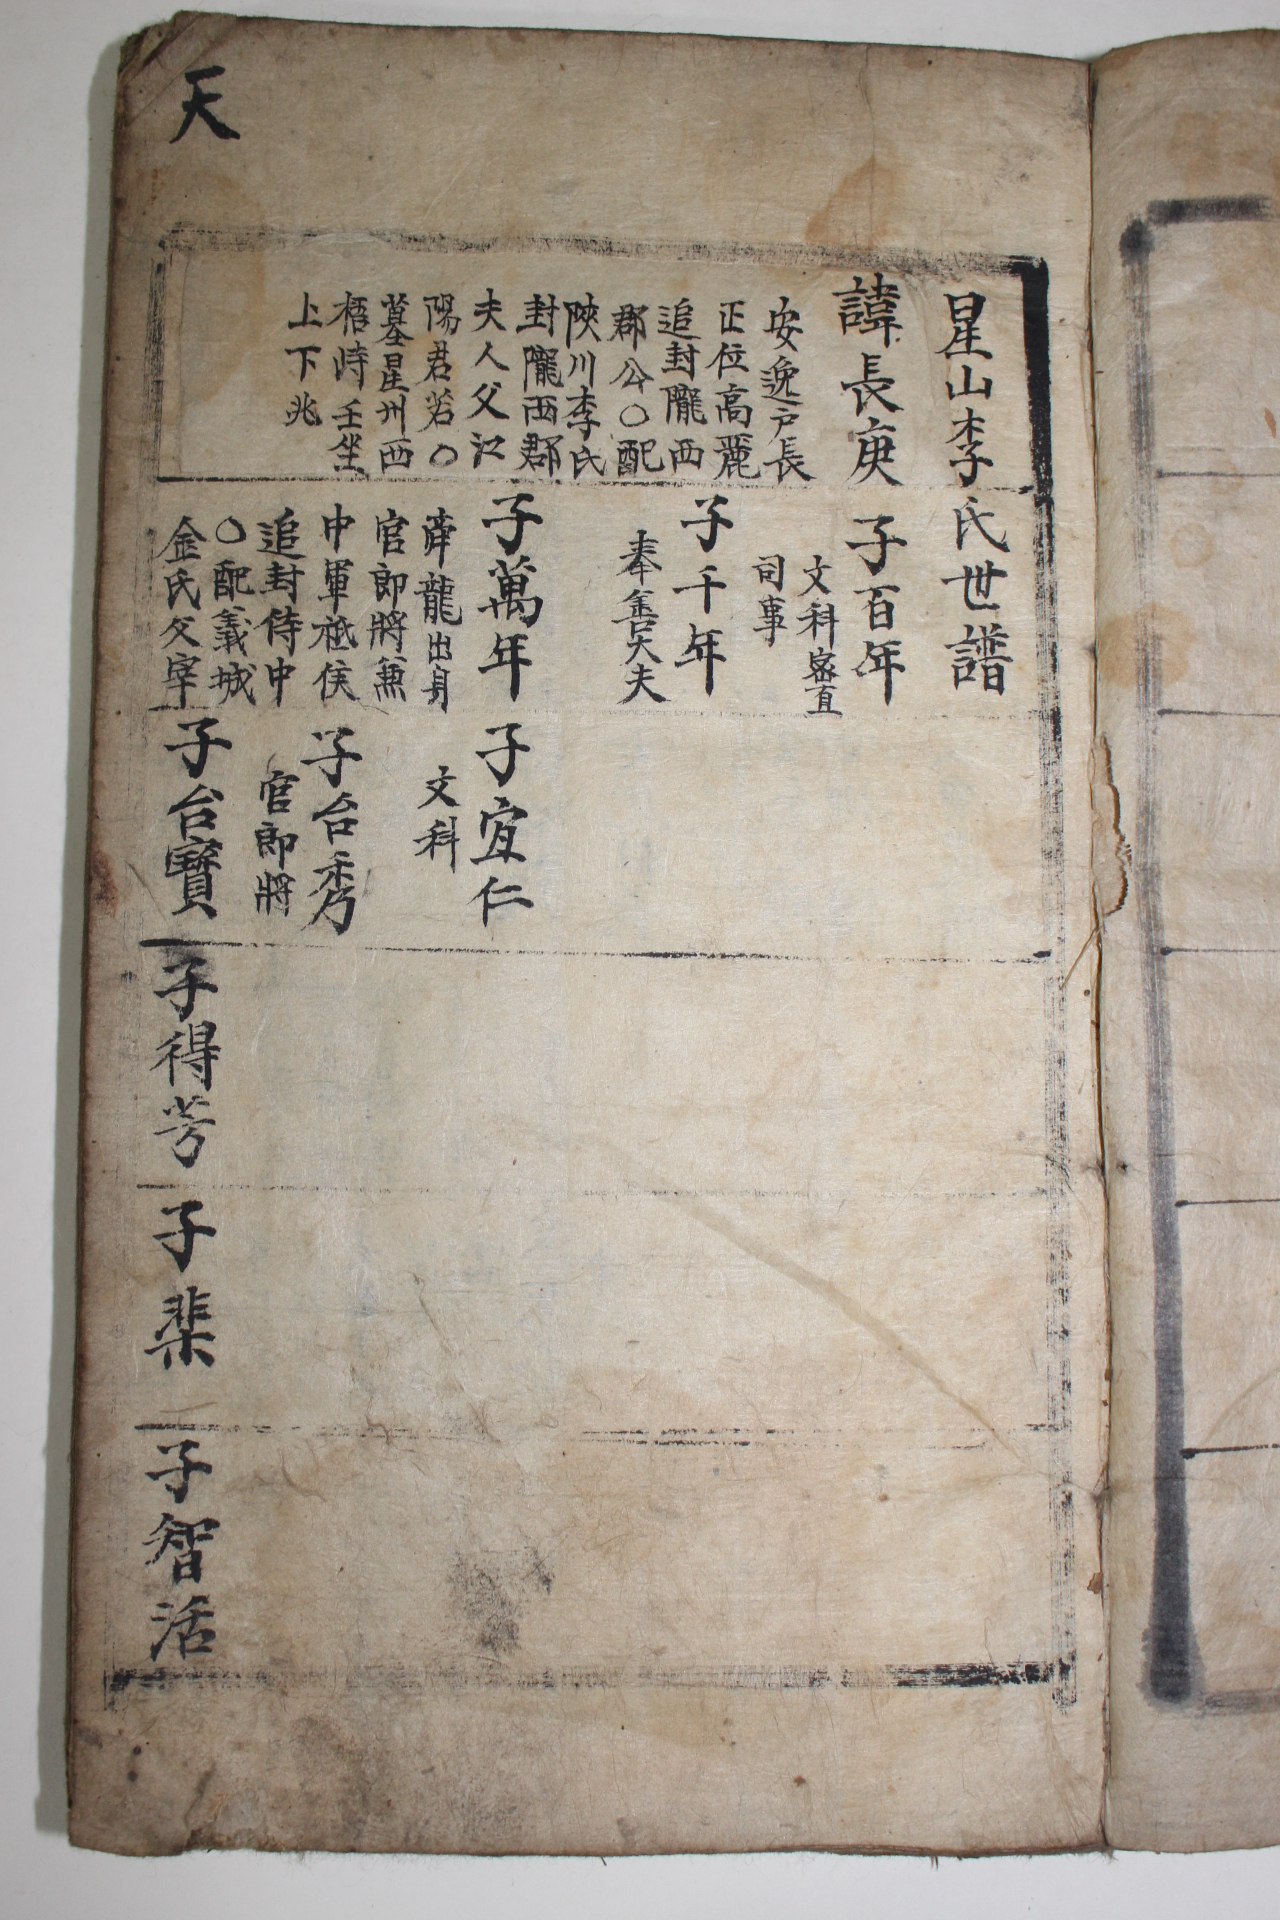 天
星山李氏世譜
諱長庚
安逸戶長
正位高麗
追封隴西
郡公〇配
陜川李氏
封隴西郡
夫人父江
陽君若〇
墓星州西
梧時壬坐
上下兆
子百年
文科密直
司事
子千年
奉善大夫
子萬年
龍出身
官郎將兼
中軍祗侯
追封侍中
〇配義城
金氏父宰
子宜仁
文科
子台秀
官郎將
子台寶
子得芳
子棐
子智活